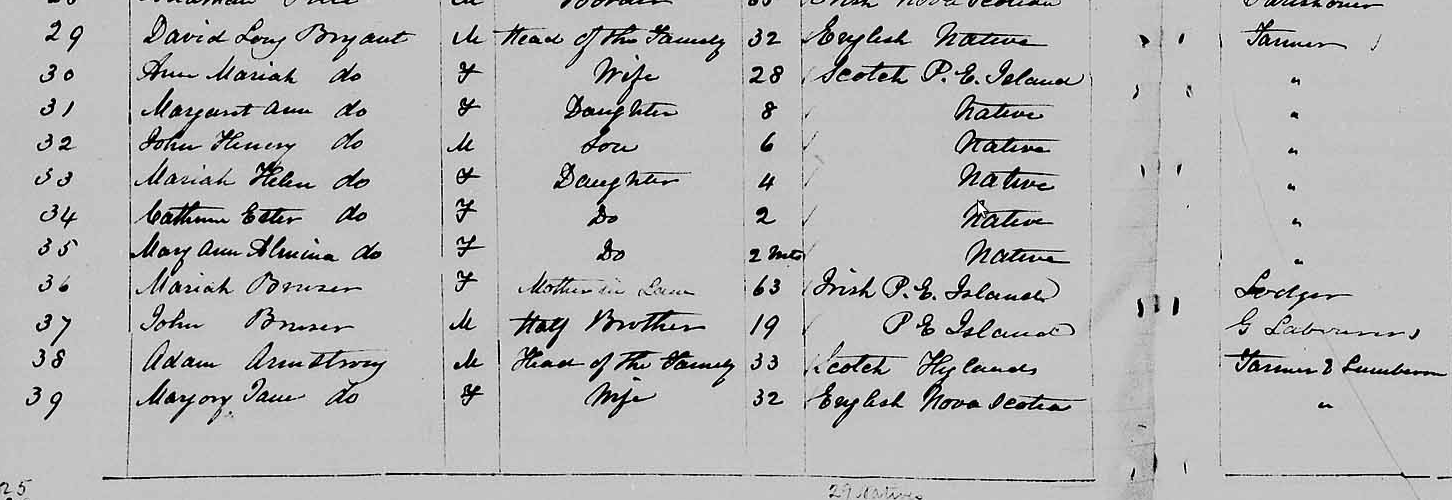 29 David Long Bryant M Head of the Family 32 English Native Farmer
30 Ann Mariah do F Wife 28 Scotch P. E. Island "
31 Margaret Ann do F Daughter 8 Native "
32 John Henery do M Son 6 Native "
33 Mariah Helen do F Daughter 4 Native "
34 Catherine Ester do F Do 2 Native "
35 Mary Ann Almina do F Do 2 Mts Native "
36 Mariah F Mother in Law 63 Irish P. E. Island Lodger
37 John M Half Brother 19 P E Island G Labourer
38 Adam Armstrong M Head of the Family 33 Scotch Hylands Farmer &
39 Marjory Jane do F Wife 32 English Nova Scotia "
25 29 Natives